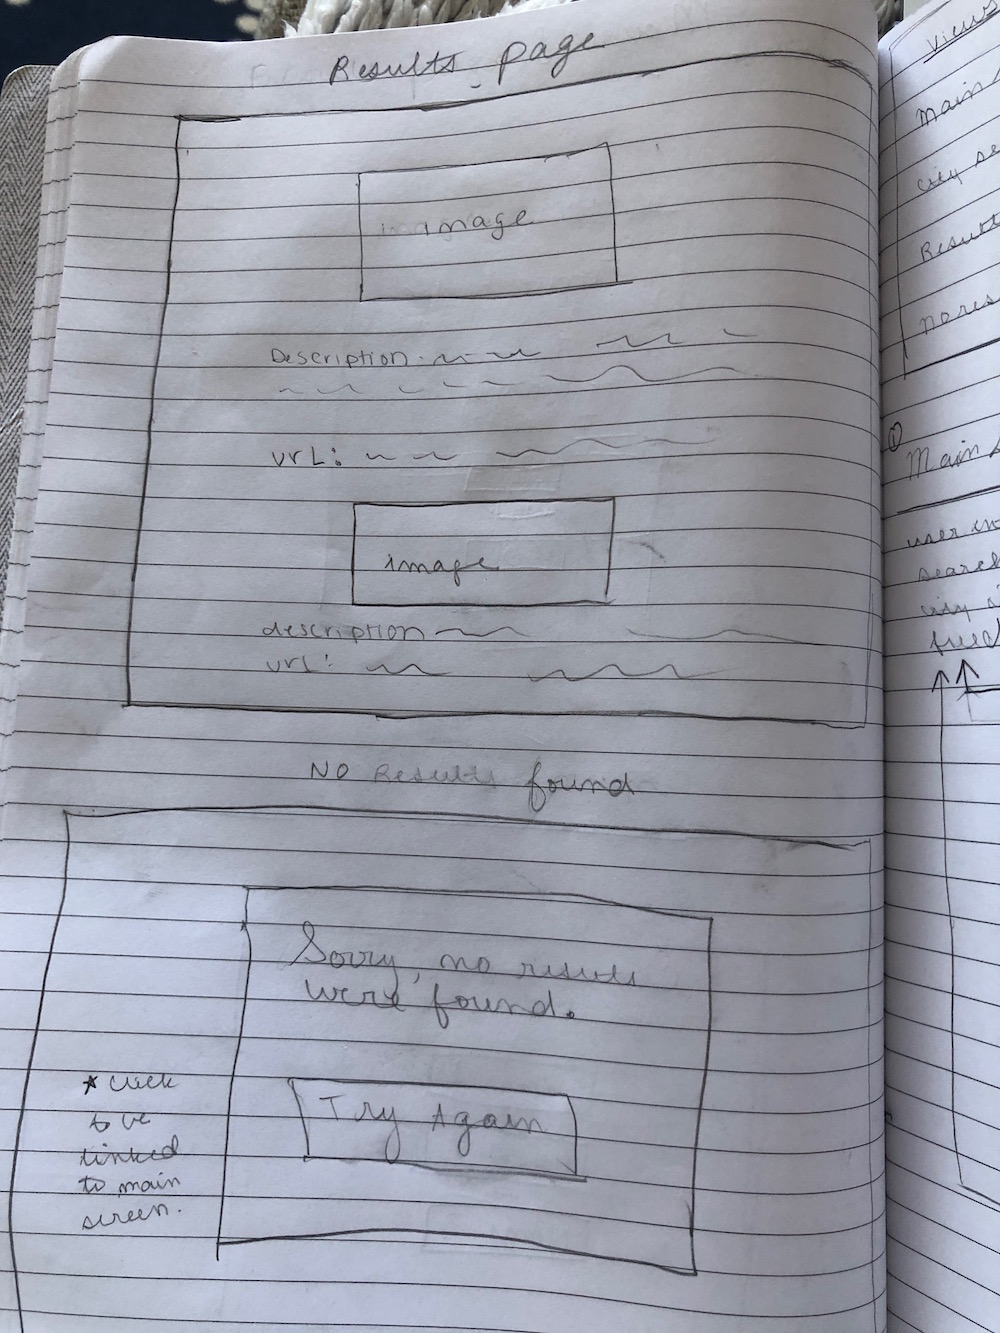 Results page
image
Description
urL:
image
description
url:
No Results found
Sorry, no results
were found.
Try Again
* Click
to be
linked
to main
screen.
Views
Main
city se
Result
nores
①
Main
user en
search
city